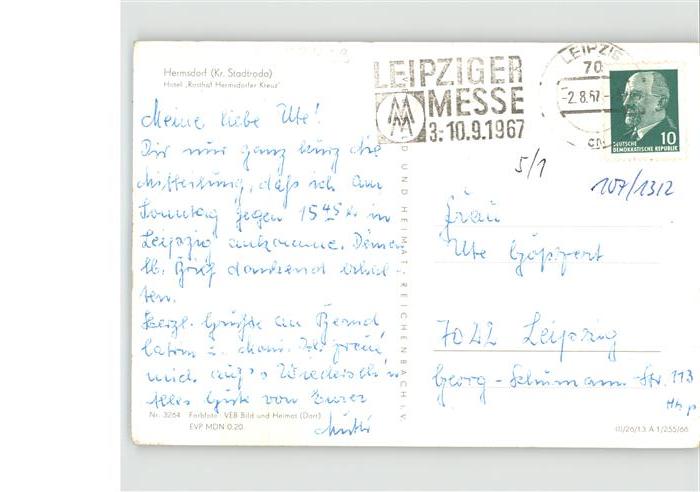 Hermsdorf (Kr. Stadtroda)
Hotel „Rasthof Hermsdorfer Kreuz"
Meine liebe Ute!
Dir nur ganz kurz die
Mitteilung, daß ich am
Sonntag gegen 15 45 h in
Leipzig ankomme. Deinen
lb. Brief dankend erhal-
ten.
Herzl. Grüße an Bernd,
mich auf's Wiederseh'n
Alles Gute von Eurer
Mutti
Nr. 3264 Farbfoto VEB Bild und Heimat (Dart)
EVP MDN 0.20
UND HEIMAT, REICHENBACH I. V.
LEIPZIGER
MESSE
3.-10.9.1967
LEIPZIG
70
-2.8.67-
DEUTSCHE
DEMOKRATISCHE REPUBLIK
10
5/1
107/1312
Frau
Ute Göpfert
7042 Leipzig
Georg-Schumann-Str. 113
III/26/13 A 1/255/66